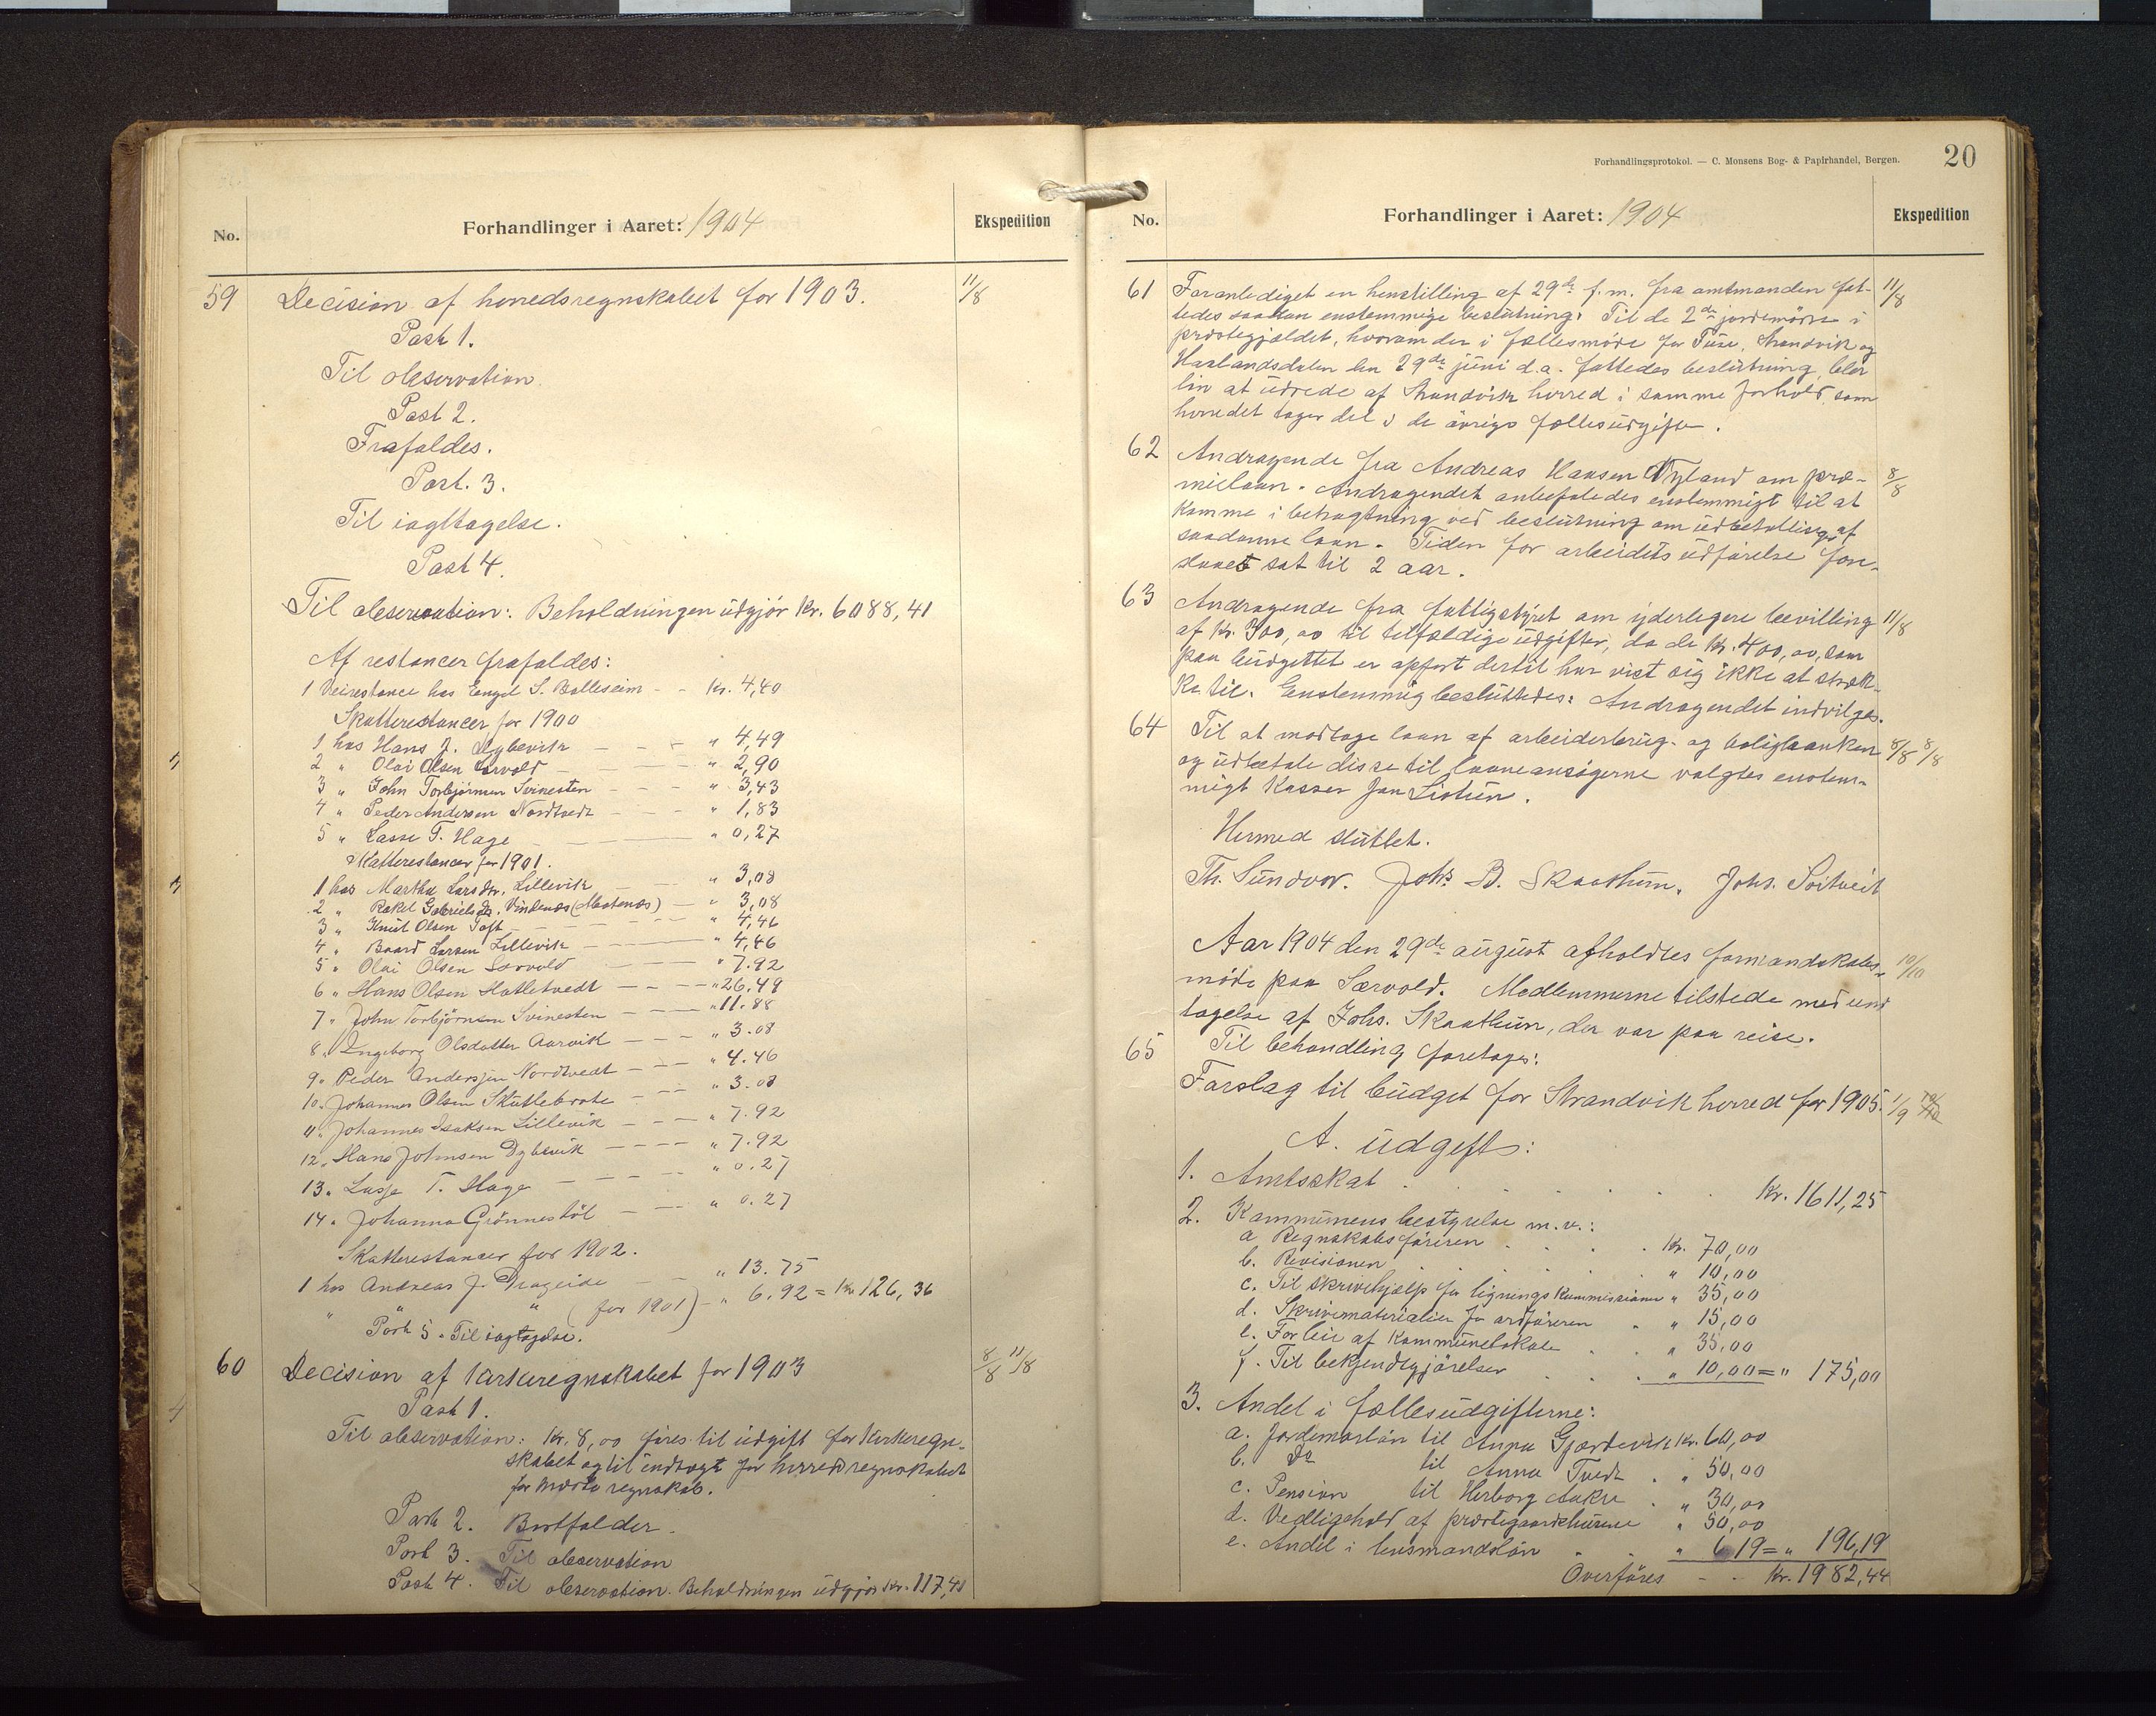 No.
Forhandlinger i Aaret: 1904
Ekspedition
59 Decision af herredsregnskabet for 1903. 11/8
Post 1.
Til observation.
Post 2.
Frafaldes.
Post. 3.
Til iagttagelse.
Post 4.
Til observation: Beholdningen udgjør Kr. 6088,41
Af restancer frafaldes:
1 Veirestance hos Engel S. Balleseim - - Kr. 4,40
Skatterestancer for 1900
1 hos Hans J. Dybevik - - - " 4,49
2 " Olai Olsen Sørvold - - - " 2,90
3 " John Torbjørnsen Svinesten - - - " 3,43
4 " Peder Andersen Nordtvedt - - " 1,83
5 " Lasse T. Hage - - " 0,27
Skatterestancer for 1901.
1 hos Martha Larsdtr. Lillevik - - " 3,08
2 " Rakel Gabrielsdtr. Vindenæs () - " 3,08
3 " Knut Olsen Toft - - - " 4,46
4 " Baard Larsen Lillevik - - " 4,46
5 " Olai Olsen Sørvold - - " 7.92
6 " Hans Olsen Hatletvedt - - - " 26.49
7 " John Torbjørnsen Svinesten - - - " 11.88
8 " Ingeborg Olsdatter Aarvik - - - " 3.08
9 " Peder Andersjen Nordtvedt - - - " 4.46
10 " Johannes Olsen Skutlebrote - - - " 3.08
11 " Johannes Isaksen Lillevik - - - " 7.92
12 " Hans Johnsen Dybevik - - - - " 7.92
13 " Lasse T. Hage - - - - " 0.27
14 " Johanna Grønnestøl - - - " 0.27
Skatterestancer for 1902.
1 hos Andreas J. Drageide - - " 13.75
" " " (for 1901) - " 6.92 = Kr. 126,36
Post 5. Til iagttagelse.
60 Decision af kirkeregnskabet for 1903 8/8 11/8
Post 1.
Til observation: Kr. 8,00 føres til udgift for kirkeregn-
skabet og til indtægt for herredsregnskabet
for næste regnskab.
Post 2. Bortfalder.
Post 3. Til observation
Post 4. Til observation. Beholdningen udgjør Kr. 117,41
Forhandlingsprotokol. — C. Monsens Bog- & Papirhandel, Bergen. 20
No.
Forhandlinger i Aaret: 1904
Ekspedition
61 Foranlediget en henstilling af 29de f.m. fra amtmanden fat- 11/8
tedes saadan enstemmige beslutning: Til de 2de jordemødre i
præstegjældet, hvorom der i fællesmøde for Fuse, Strandvik og
Haalandsdalen den 29de juni d.a. fattedes beslutning, blir
løn at udrede af Strandvik herred i samme forhold, som
herredet tager del i de øvrige fællesudgifter.
62 Andragende fra Andreas Hansen Nyland om præ- 8/8
mielaan. Andragendet anbefaledes enstemmigt til at
komme i betragtning ved beslutning om udbetalling af
saadanne laan. Tiden for arbeidets udførelse fore-
slaaet sat til 2 aar.
63 Andragende fra fattigstyret om yderlegere bevilling 11/8
af Kr. 300,00 til tilfældige udgifter, da de Kr. 400,00, som
paa budgettet er opført dertil har vist sig ikke at stræk-
ke til. Enstemmig besluttedes: Andragendet indvilges.
64 Til at modtage laan af arbeiderbrug- og boligbanken 8/8 8/8
og udbetale disse til laaneansøgerne valgtes enstem-
migt Kasser Jon Listun.
Hermed sluttet.
Th. Sundvor. Johs. B. Skaathun. Johs. Soitveit
Aar 1904 den 29de august afholdtes formandskabs- 10/10
møde paa Særvold. Medlemmerne tilstede med und
tagelse af Johs. Skaathun, der var paa reise.
65 Til behandling foretages:
Forslag til budget for Strandvik herred for 1905. 1/9
A. Udgift:
1. Amtsskat . . . . . Kr. 1611,25
2. Kommunens bestyrelse m.v.:
a Regnskabsføreren . . . . Kr. 70,00
b. Revisionen . . . . . " 10,00
c. Til skrivehjælp for ligningskommissionen " 35,00
d. Skrivematerialier for ordføreren . " 15,00
e. For leie af kommunelokale . . " 35,00
f. Til bekjendtgjørelser . . . " 10,00 = " 175,00
3. Andel i fællesudgifterne:
a. Jordemorløn til Anna Gjærdevik Kr. 60,00
b. Do til Anna Tvedt . " 50,00
c. Pension til Herborg Aakre . " 30,00
d. Vedligehold af præstegaardshusene " 50,00
e. Andel i lensmandsløn . . " 6,19 = " 196,19
Overføres - - Kr. 1982,44